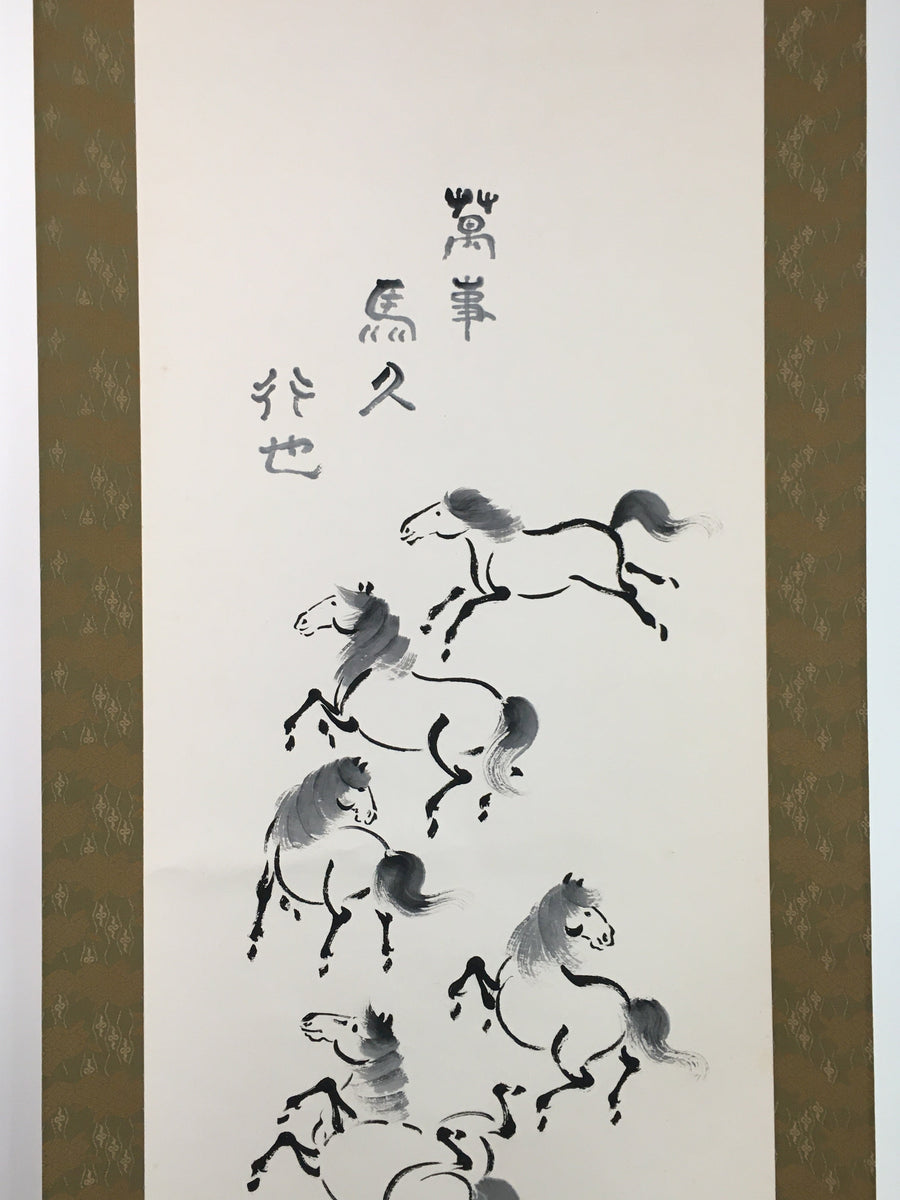 萬事
馬久
行也